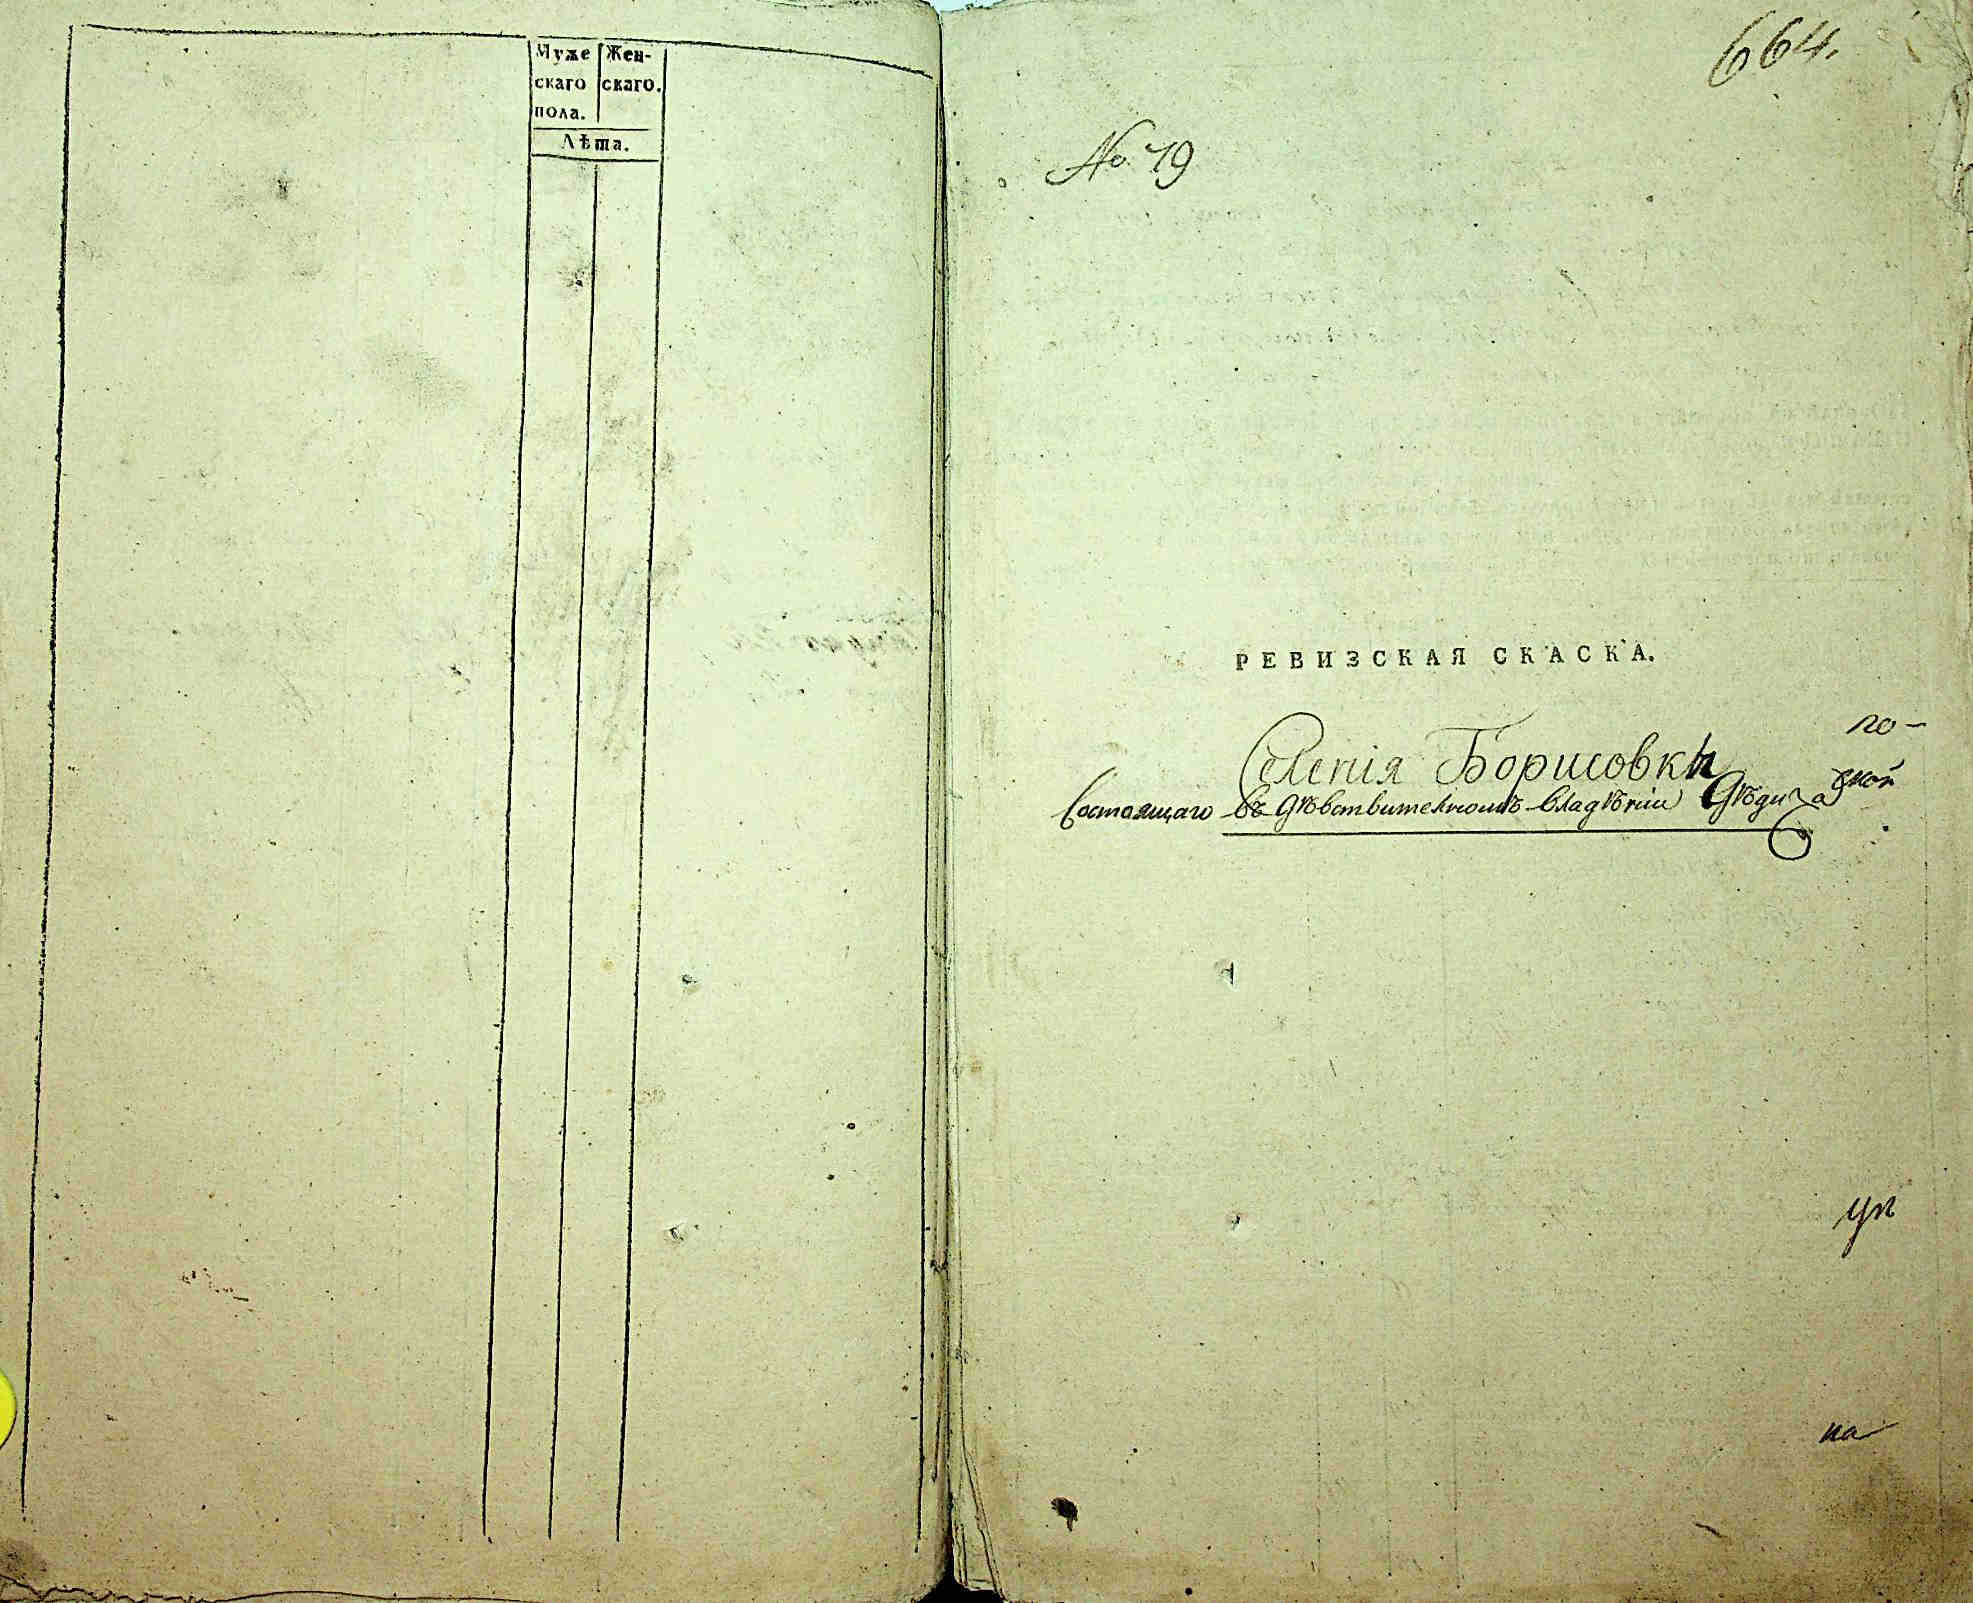 Муже
скаго
пола.
Жен-
скаго.
Лѣта.
664.
№ 19
РЕВИЗСКАЯ СКАСКА.
Селенія Борисовки
Состоящаго въ дѣвствителномъ владѣніи Дѣдича
по-
ской
ур
на